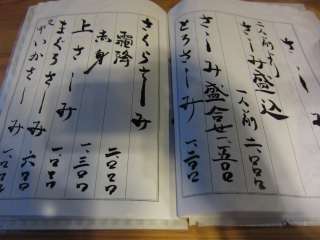 さしみ
二人前より
さしみ盛込 一人前 二.〇〇〇
さしみ盛合せ 一.五〇〇
とろさしみ 一.二〇〇
さくらさしみ
霜降
赤身 二.〇〇〇
上さしみ 一.三〇〇
まぐろさしみ 一.〇〇〇
いかさしみ 六〇〇